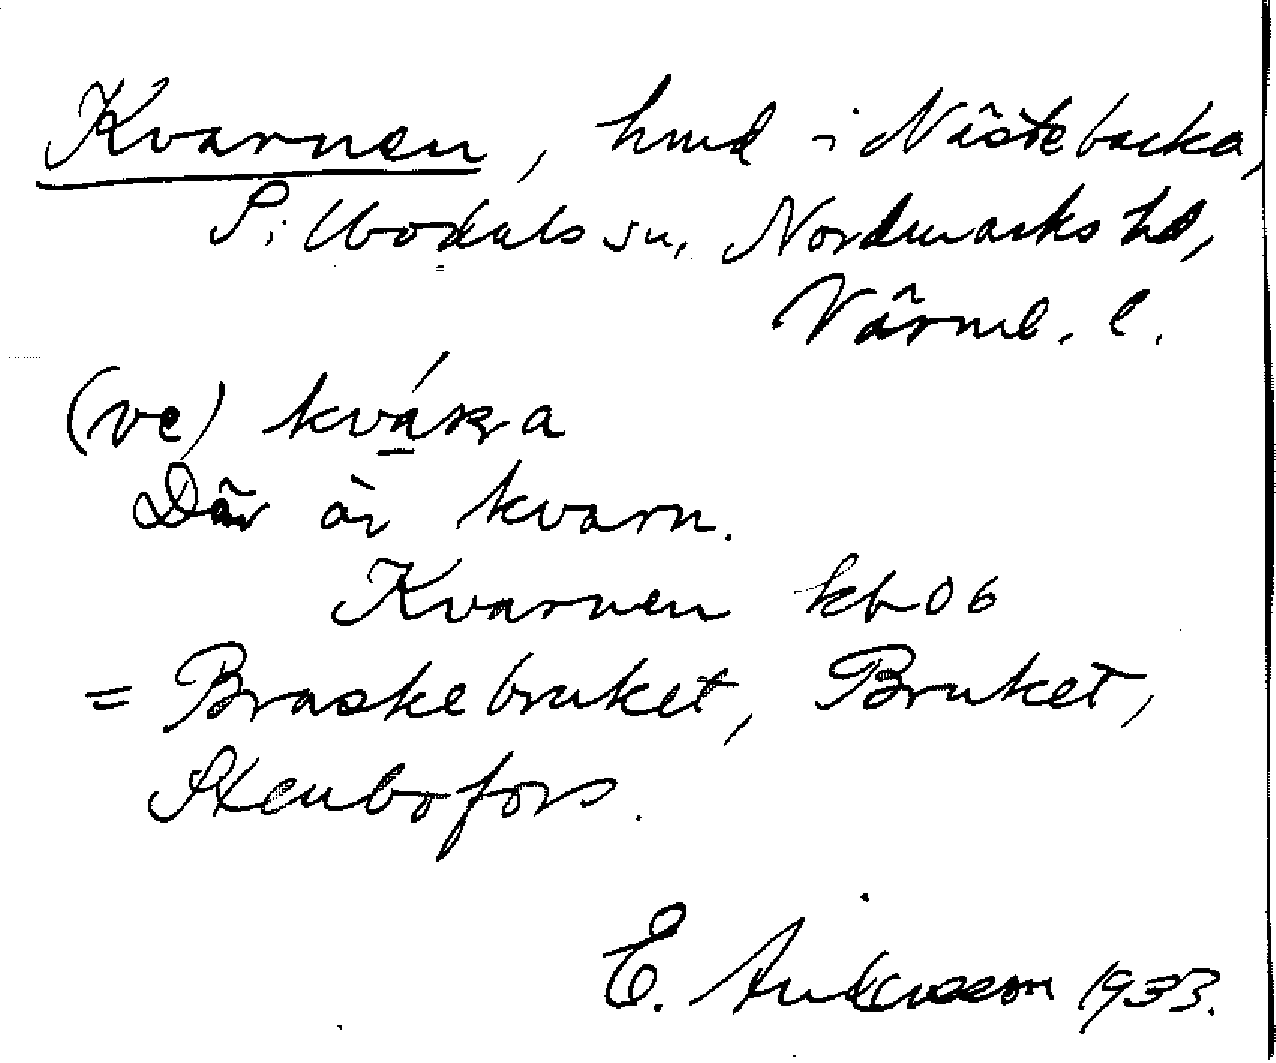 Kvarnen, hmd i Nästebacka,
Silbodals sn, Nordmarks hd,
Värml. l.
(ve)
Där är kvarn.
Kvarnen kb 06
= Braskebruket, Bruket,
Stenbofors.
E. 1933.